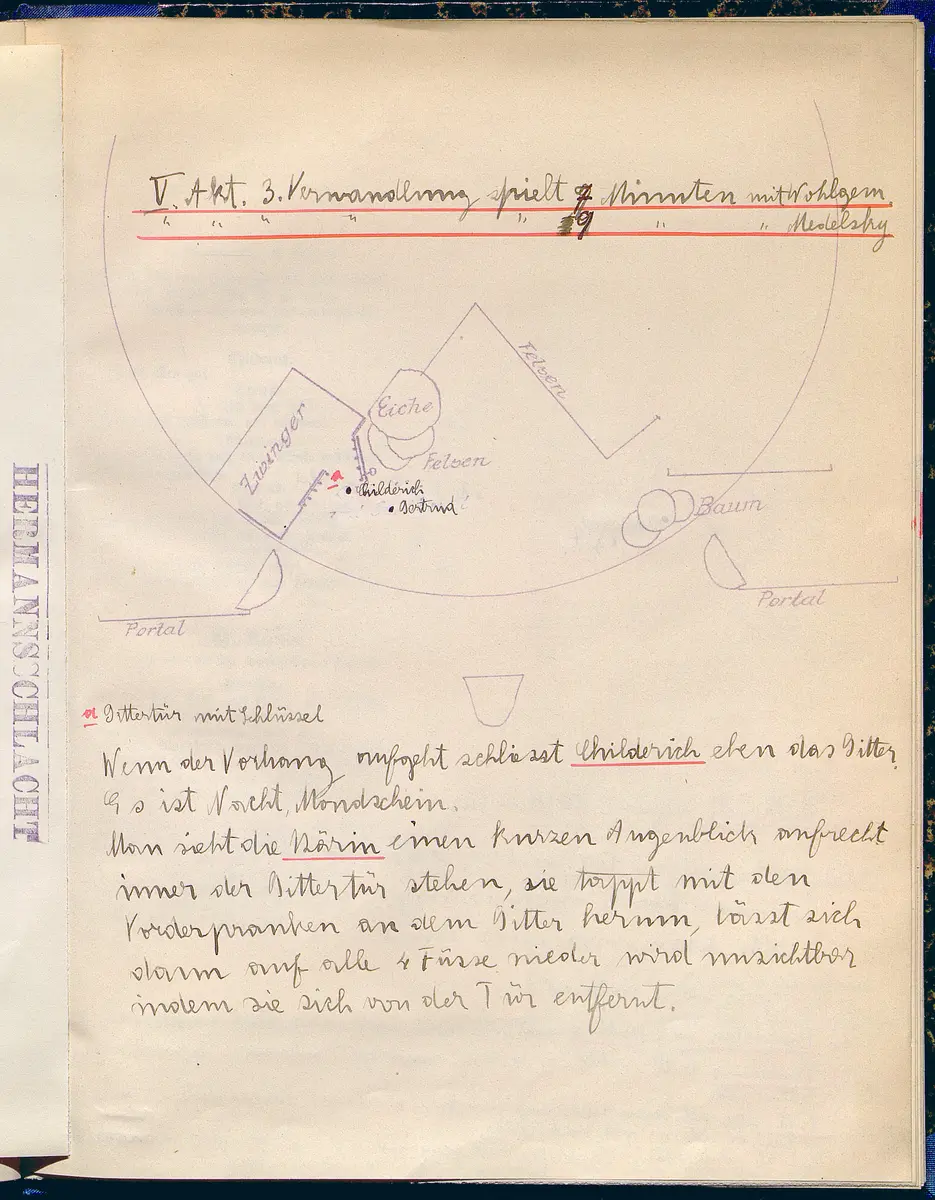 V. Akt. 3. Verwandlung spielt 7 Minuten mit Wohlgem.
" " " " " 9 " " Medelsky
Felsen
Eiche
Zwinger
Felsen
a
Childerich
Gertrud
Baum
Portal
Portal
HERMANNSCHLACHT
a Gittertür mit Schlüssel
Wenn der Vorhang aufgeht schliesst Childerich eben das Gitter.
Es ist Nacht, Mondschein.
Man sieht die Bärin einen kurzen Augenblick aufrecht
inner der Gittertür stehen, sie tappt mit den
Vorderpranken an dem Gitter herum, lässt sich
dann auf alle 4 Füsse nieder wird unsichtbar
indem sie sich von der Tür entfernt.